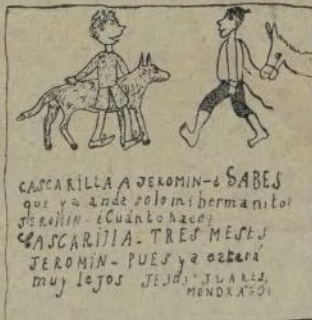 CASCARILLA A JEROMIN-¿SABES
que ya anda solo mi hermanito?
JEROMIN-¿Cuánto hace?
CASCARILLA- TRES MESES
JEROMIN- PUES ya estará
muy lejos JESÚS SUARES,